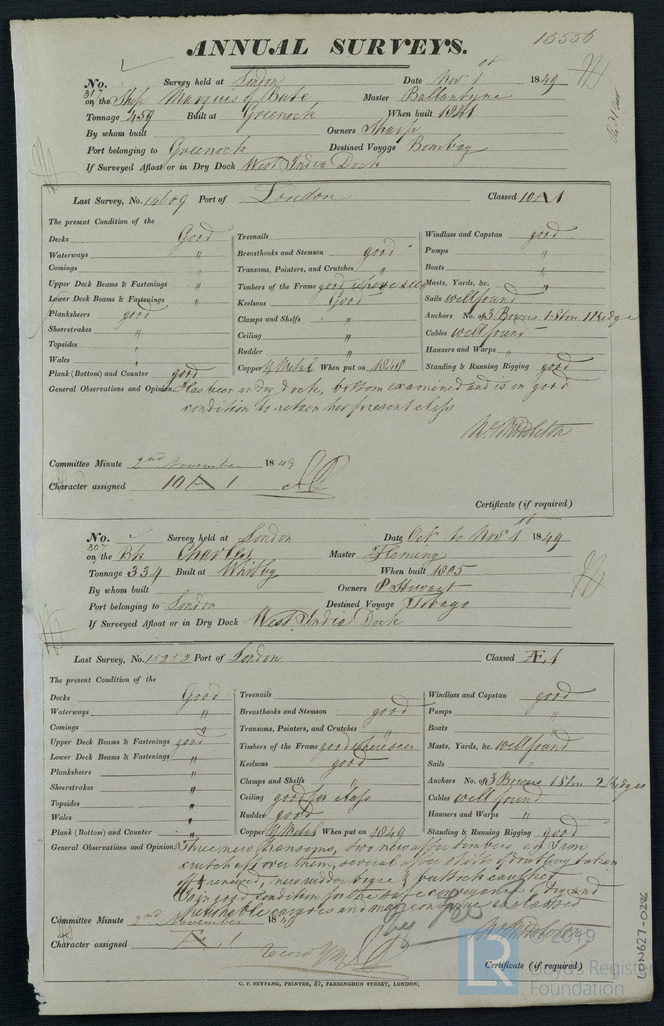 15556
ANNUAL SURVEYS.
No. 317 Survey held at London Date Nov 1st 1849
on the Ship Marquis of Bute Master Ballantyne
Tonnage 459 Built at Greenock When built 1841
By whom built Owners Sharp
Port belonging to Greenock Destined Voyage Bombay
If Surveyed Afloat or in Dry Dock West India Dock
Last Survey, No. 14609 Port of London Classed 10 A 1
The present Condition of the
Decks Good
Waterways "
Comings "
Upper Deck Beams & Fastenings "
Lower Deck Beams & Fastenings "
Planksheers good
Sheerstrakes "
Topsides "
Wales "
Plank (Bottom) and Counter good
Treenails
Breasthooks and Stemson good
Transoms, Pointers, and Crutches "
Timbers of the Frame good where seen
Keelsons Good
Clamps and Shelfs "
Ceiling "
Rudder "
Copper Y Metal When put on 1848
Windlass and Capstan good
Pumps "
Boats "
Masts, Yards, &c. "
Sails well found
Anchors No. of 3 Bowers 1 Strm 1 Kedge
Cables well found
Hawsers and Warps "
Standing & Running Rigging good
General Observations and Opinion, Has been in dry dock, bottom examined and is in good
condition to retain her present class
Committee Minute 2nd November 1849
Character assigned 10 A 1
Certificate (if required)
No. 307 Survey held at London Date Oct 10 Nov 1st 1849
on the Bk Master Fleming
Tonnage 334 Built at Whitby When built 1805
By whom built Owners P Stewart
Port belonging to London Destined Voyage Tobago
If Surveyed Afloat or in Dry Dock West India Dock
Last Survey, No. 15252 Port of London Classed Æ 1
The present Condition of the
Decks Good
Waterways "
Comings "
Upper Deck Beams & Fastenings good
Lower Deck Beams & Fastenings "
Planksheers "
Sheerstrakes "
Topsides "
Wales "
Plank (Bottom) and Counter "
Treenails
Breasthooks and Stemson good
Transoms, Pointers, and Crutches "
Timbers of the Frame good where seen
Keelsons good
Clamps and Shelfs "
Ceiling good for class
Rudder good
Copper Y Metal When put on 1849
Windlass and Capstan good
Pumps "
Boats "
Masts, Yards, &c. well found
Sails "
Anchors No. of 3 Bowers 1 Strm 2 Kedges
Cables well found
Hawsers and Warps "
Standing & Running Rigging good
General Observations and Opinion, Three new transoms, two new after timbers, an Iron
crutch aft over them, several of taken
off & renewed, new rudder & buttock caulked
Is in good condition for the safe conveyance of dry and
perishable cargoes and may continue as classed
Committee Minute 2nd November 1849
Character assigned Æ 1
record YM
Certificate (if required)
G. F. SEYFANG, PRINTER, 57, FARRINGDON STREET, LONDON.
LON627-0226
LR
© 2019
Lloyd's Register
Foundation